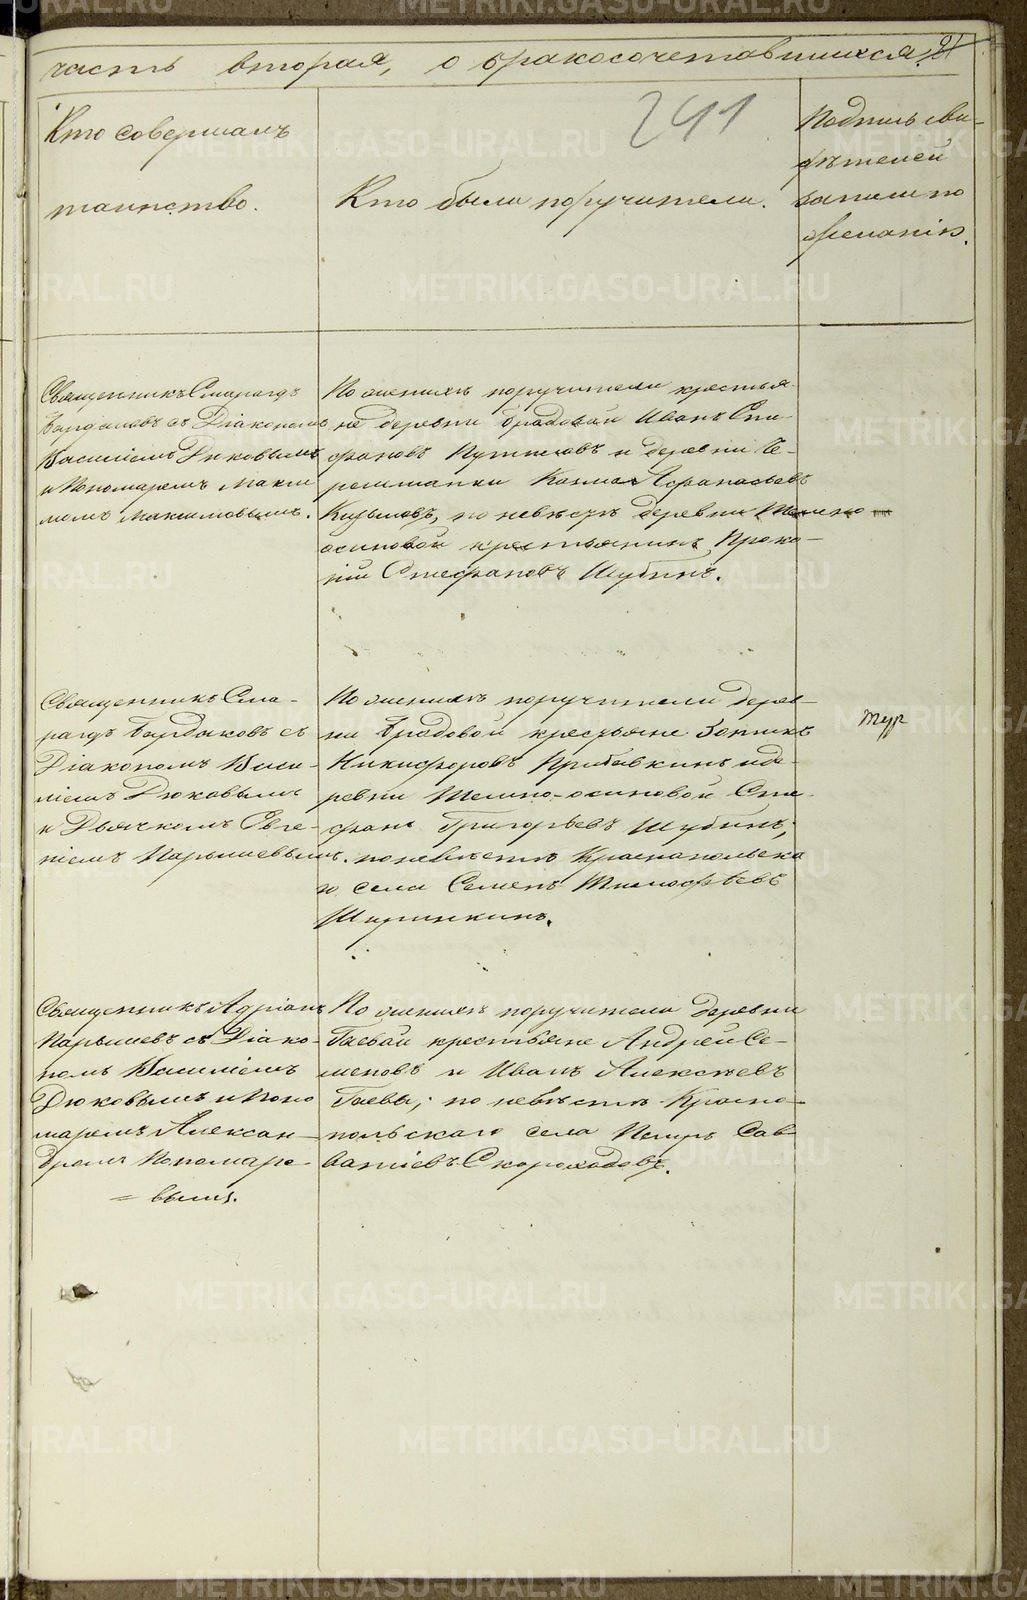 часть вторая, о бракосочетавшихся.
241
Кто совершалъ
таинство.
Кто были поручители.
Подпись сви-
дѣтелей
записи по
желанію.
Священникъ Смарагдъ
Бардаковъ съ Діакономъ
Василіемъ Дюковымъ
и Пономаремъ Макси
момъ Максимовымъ.
По женихѣ поручители крестья-
не деревни Бродовой Иванъ Сте
фановъ и деревни Че-
ремшанки Козма Афанасьевъ
по невѣстѣ деревни Темно
осиновой крестьянинъ Проко-
пій Стефановъ Шубинъ.
Священникъ Сма-
рагдъ Бардаковъ съ
Діакономъ Васи-
ліемъ Дюковымъ
и Дьячкомъ Евге-
ніемъ Парышевымъ.
По женихѣ поручители дерев-
ни Бродовой крестьяне Зотикъ
Никифоровъ Прибавкинъ и де-
ревни Темно-осиновой Сте-
фанъ Григорьевъ Шубинъ;
по невѣстѣ Краснопольска
го села Семенъ Тимофѣевъ
Ширинкинъ.
Священникъ Адріанъ
Парышевъ съ Діако-
номъ Василіемъ
Дюковымъ и Поно
маремъ Алексан-
дромъ Пономаре-
= вымъ.
По женихѣ поручители деревни
Гаевой крестьяне Андрей Се-
меновъ и Иванъ Алексѣевъ
Гаевы; по невѣстѣ Красно-
польскаго села Петръ Сав
ватіевъ Скороходовъ.
METRIKI.GASO-URAL.RU